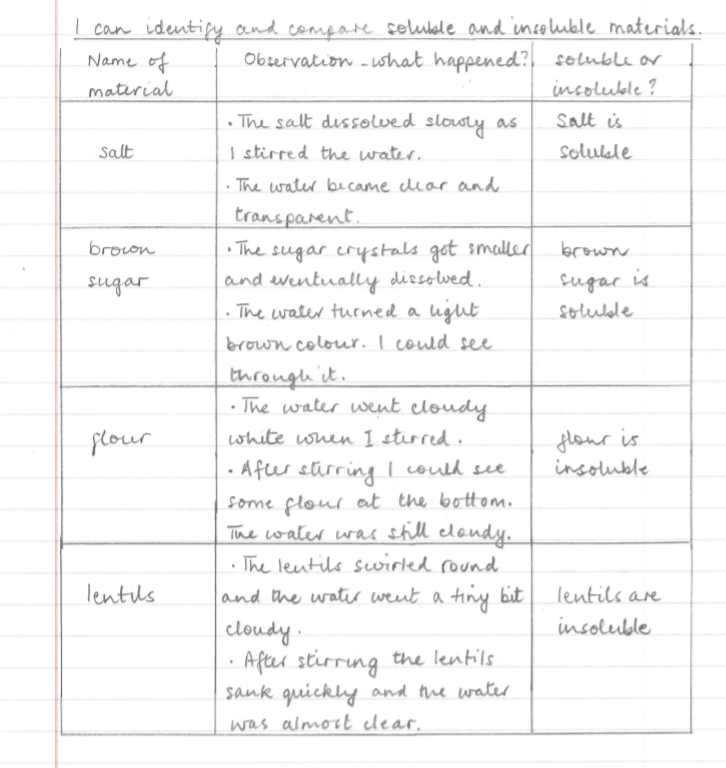 I can identify and compare soluble and insoluble materials.
Name of material
Observation - what happened?
soluble or insoluble?
salt
· The salt dissolved slowly as
I stirred the water.
· The water became clear and
transparent.
Salt is
soluble
brown
sugar
· The sugar crystals got smaller
and eventually dissolved.
· The water turned a light
brown colour. I could see
through it.
brown
sugar is
soluble
flour
· The water went cloudy
white when I stirred.
· After stirring I could see
some flour at the bottom.
The water was still cloudy.
flour is
insoluble
lentils
· The lentils swirled round
and the water went a tiny bit
cloudy.
· After stirring the lentils
sank quickly and the water
was almost clear.
lentils are
insoluble